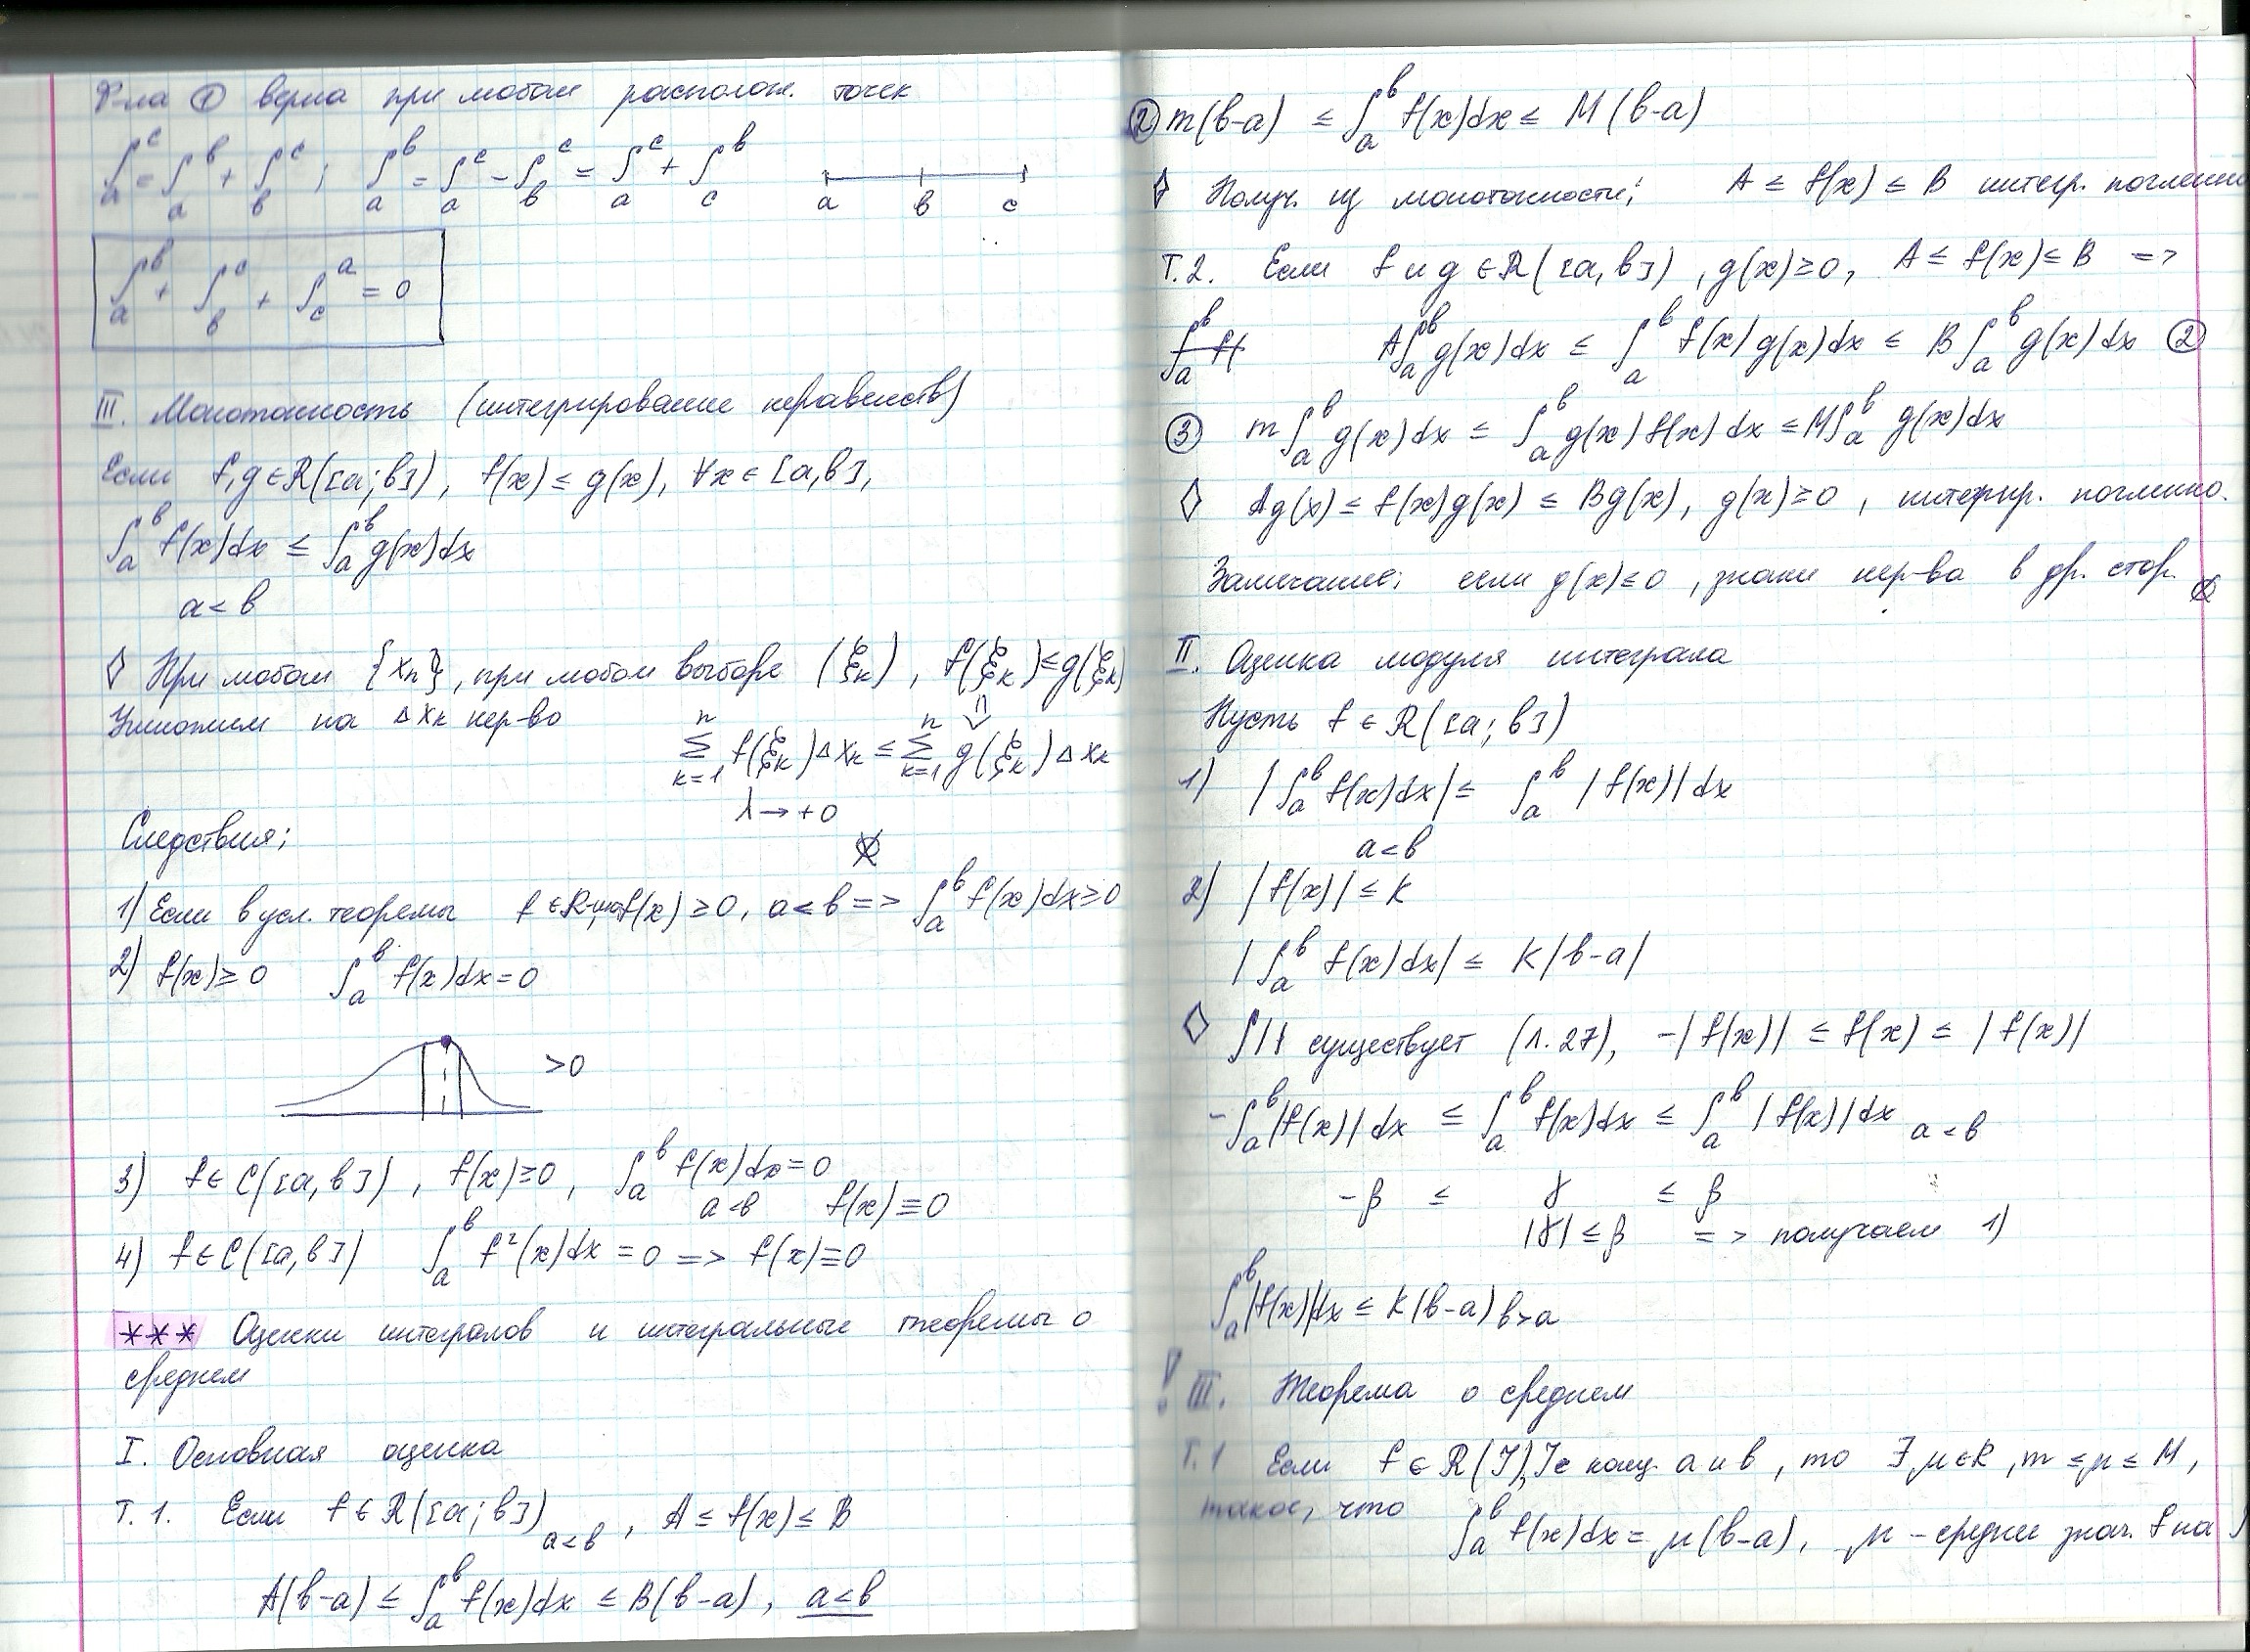 Ф-ла ① верна при любом располож. точек
∫_a^c = ∫_a^b + ∫_b^c ; ∫_a^b = ∫_a^c - ∫_b^c = ∫_a^c + ∫_c^b
a b c
∫_a^b + ∫_b^c + ∫_c^a = 0
III. Монотонность (интегрирование неравенств)
Если f,g ∈ R([a;b]), f(x) ≤ g(x), ∀x ∈ [a,b],
∫_a^b f(x)dx ≤ ∫_a^b g(x)dx
a < b
◊ При любом {x_n}, при любом выборе (ξ_k), f(ξ_k) ≤ g(ξ_k)
Умножим на Δx_k нер-во
⇓
∑_{k=1}^n f(ξ_k)Δx_k ≤ ∑_{k=1}^n g(ξ_k)Δx_k
λ → +0
Следствия:
1) Если в усл. теоремы f(x) ≥ 0, a < b => ∫_a^b f(x)dx ≥ 0
2) f(x) ≥ 0 ∫_a^b f(x)dx = 0
> 0
3) f ∈ C([a,b]), f(x) ≥ 0, ∫_a^b f(x)dx = 0
a < b f(x) ≡ 0
4) f ∈ C([a,b]) ∫_a^b f²(x)dx = 0 => f(x) ≡ 0
*** Оценки интегралов и интегральные теоремы о
среднем
I. Основная оценка
Т.1. Если f ∈ R([a;b]) a<b , A ≤ f(x) ≤ B
A(b-a) ≤ ∫_a^b f(x)dx ≤ B(b-a), a < b
② m(b-a) ≤ ∫_a^b f(x)dx ≤ M(b-a)
◊ Получ. из монотонности: A ≤ f(x) ≤ B интегр. почленно
Т.2. Если f и g ∈ R([a,b]), g(x) ≥ 0, A ≤ f(x) ≤ B =>
A∫_a^b g(x)dx ≤ ∫_a^b f(x)g(x)dx ≤ B∫_a^b g(x)dx ②
③ m∫_a^b g(x)dx ≤ ∫_a^b g(x)f(x)dx ≤ M∫_a^b g(x)dx
◊ Ag(x) ≤ f(x)g(x) ≤ Bg(x), g(x) ≥ 0, интегрир. почленно.
Замечание: если g(x) ≤ 0, знаки нер-ва в др. стор.
II. Оценка модуля интеграла
Пусть f ∈ R([a;b])
1) |∫_a^b f(x)dx| ≤ ∫_a^b |f(x)|dx
a < b
2) |f(x)| ≤ K
|∫_a^b f(x)dx| ≤ K|b-a|
◊ ∫|f| существует (Л.27), -|f(x)| ≤ f(x) ≤ |f(x)|
-∫_a^b |f(x)|dx ≤ ∫_a^b f(x)dx ≤ ∫_a^b |f(x)|dx a < b
-β ≤ γ ≤ β
|γ| ≤ β => получаем 1)
∫_a^b |f(x)|dx ≤ K(b-a) b>a
! III. Теорема о среднем
Т.1 Если f ∈ R(J), J с конц. a и b, то ∃ μ ∈ R, m ≤ μ ≤ M,
такое, что
∫_a^b f(x)dx = μ(b-a), μ - средн знач. f на J